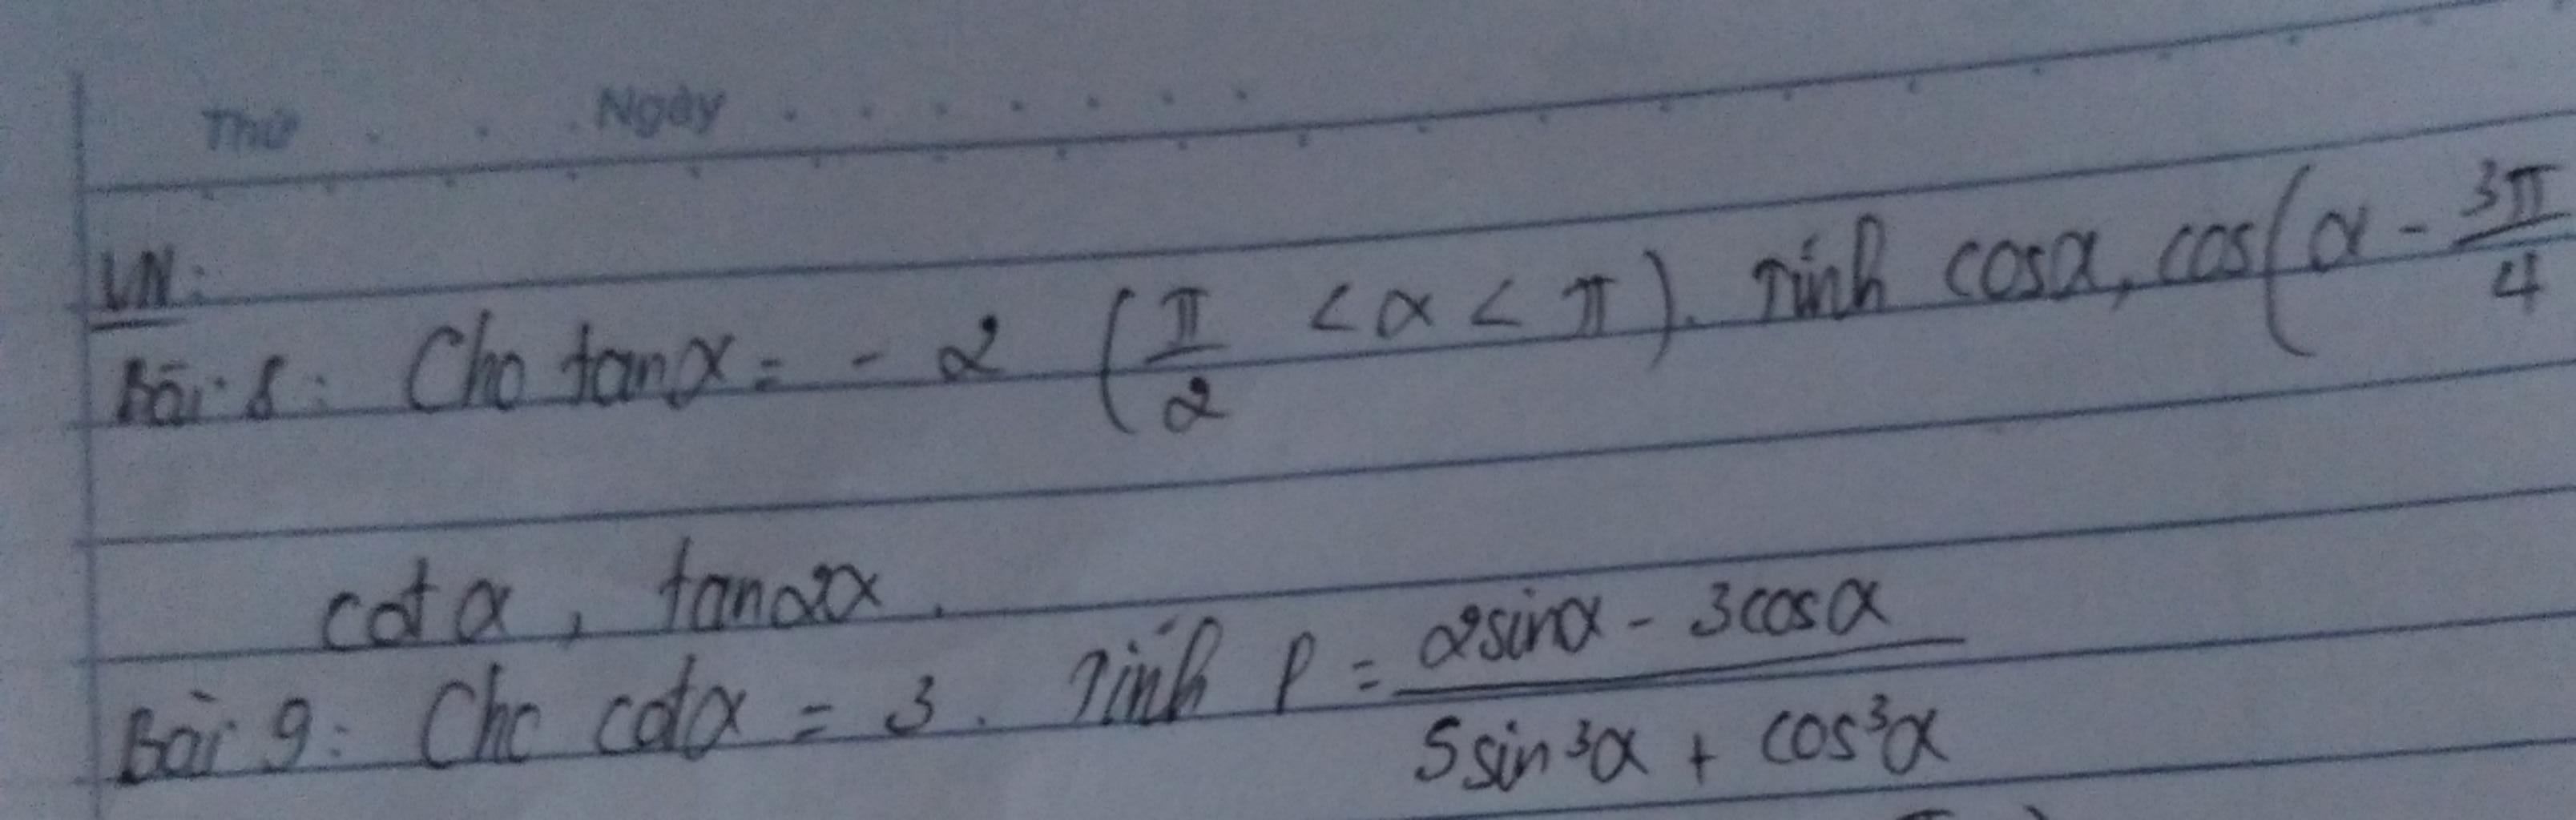 Thứ . . . Ngày . . . . . . .
VN:
Bài 8: Cho tanα = - 2 (π/2 < α < π). Tính cosα, cos(α - 3π/4
cot α, tan2α.
Bài 9: Cho cotα = 3. Tính P = (2sinα - 3cosα)/(5sin³α + cos³α)